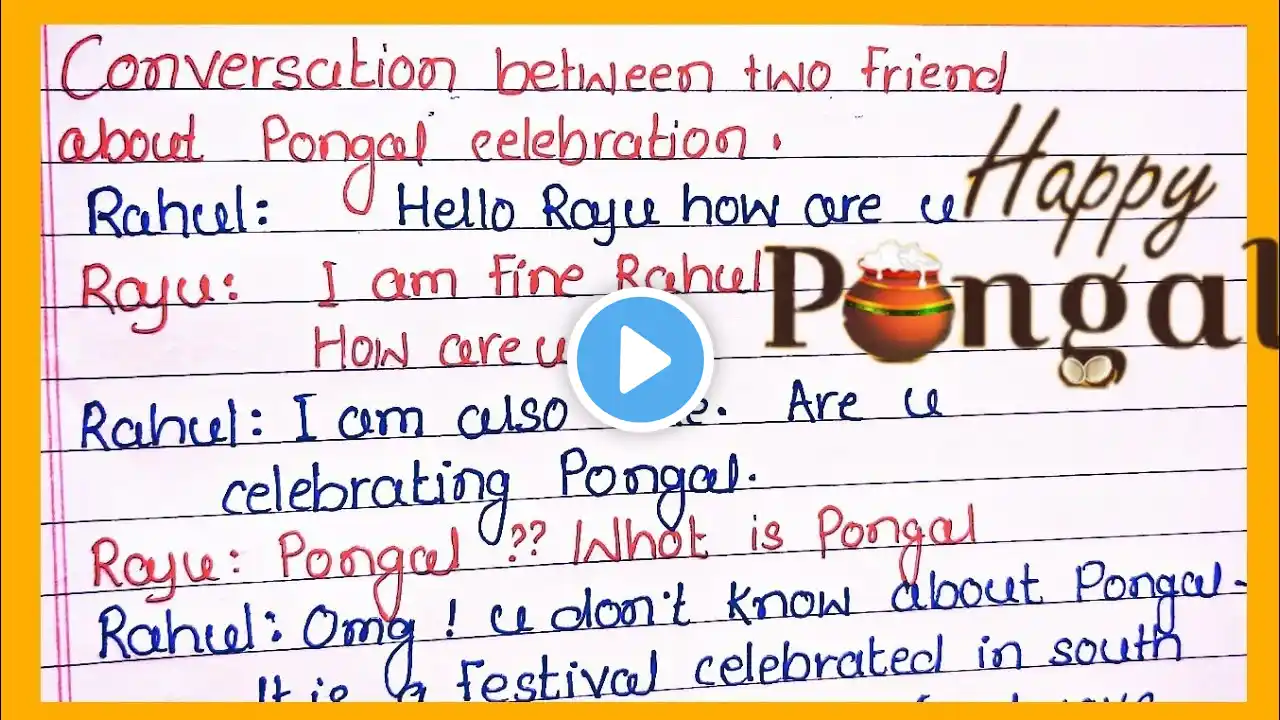 Conversation between two friend
about Pongal celebration.
Rahul: Hello Raju how are u
Raju: I am fine Rahul
How are u
Rahul: I am also Are u
celebrating Pongal.
Raju: Pongal ?? What is Pongal
Rahul: Omg ! u don't know about Pongal-
It is a festival celebrated in south
Happy
Pongal